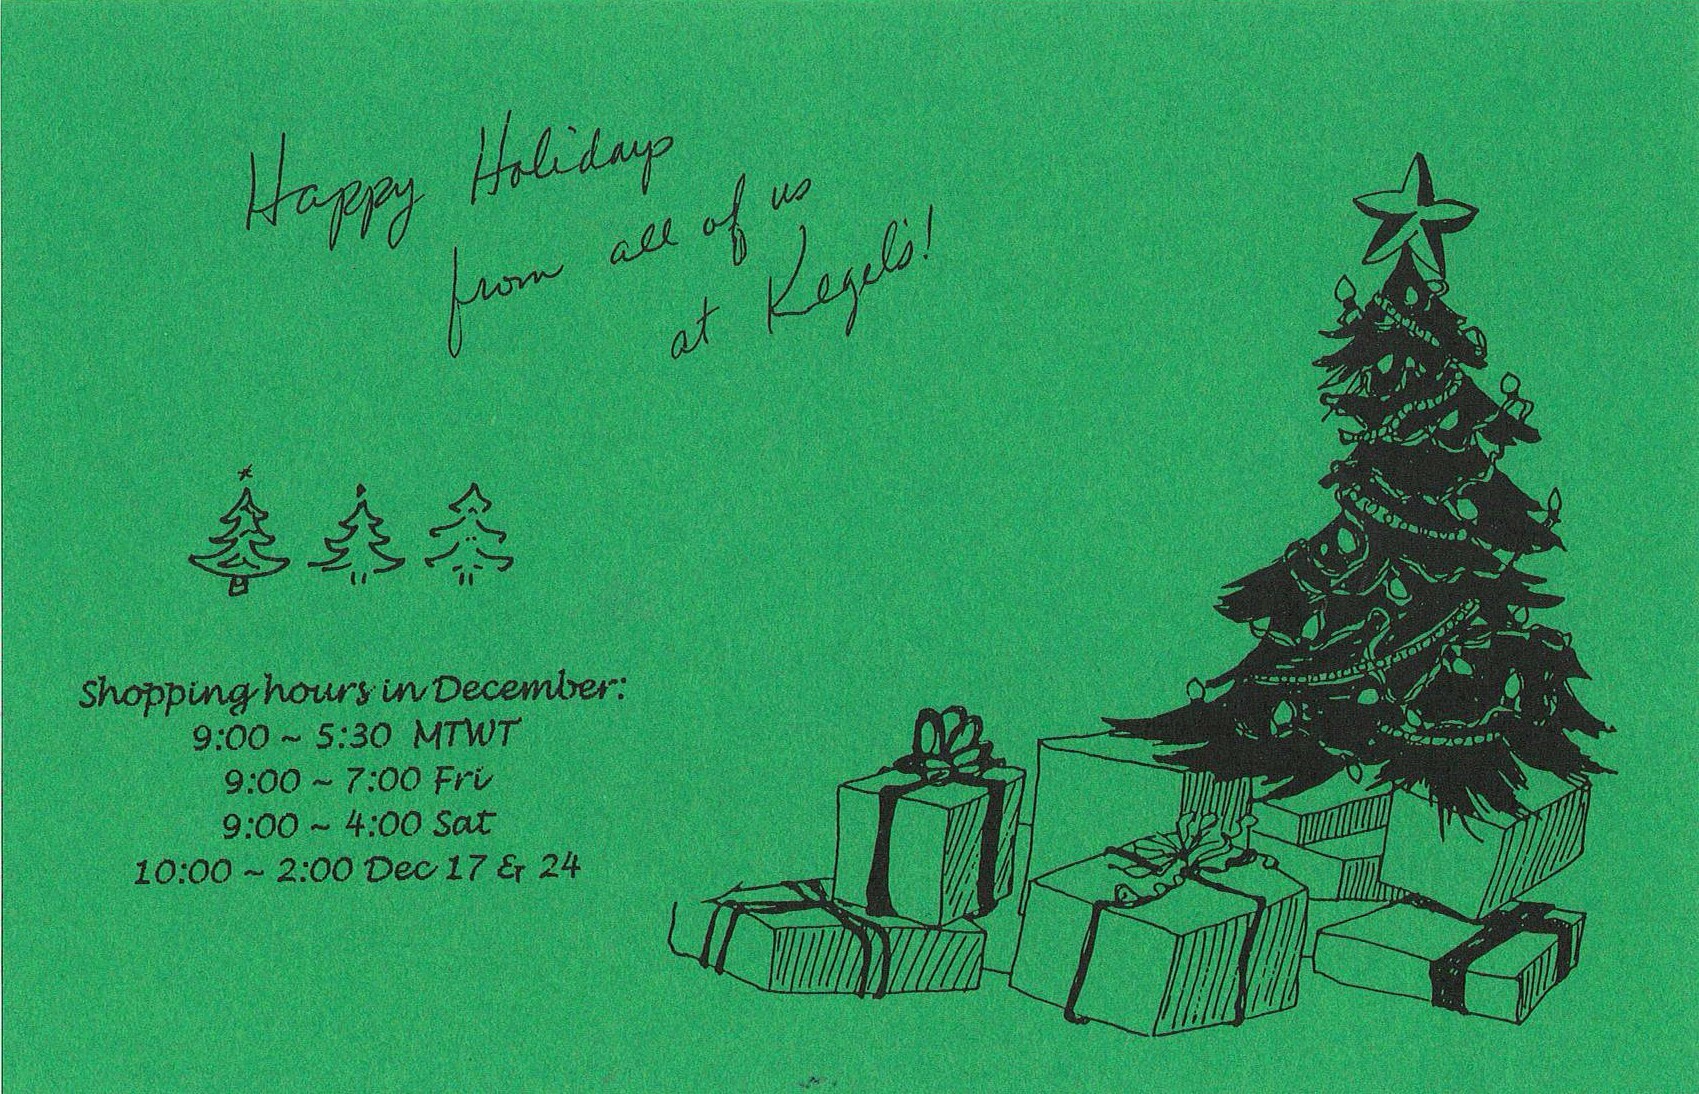 Happy Holidays
from all of us
at Kegel's!
Shopping hours in December:
9:00 ~ 5:30 MTWT
9:00 ~ 7:00 Fri
9:00 ~ 4:00 Sat
10:00 ~ 2:00 Dec 17 & 24